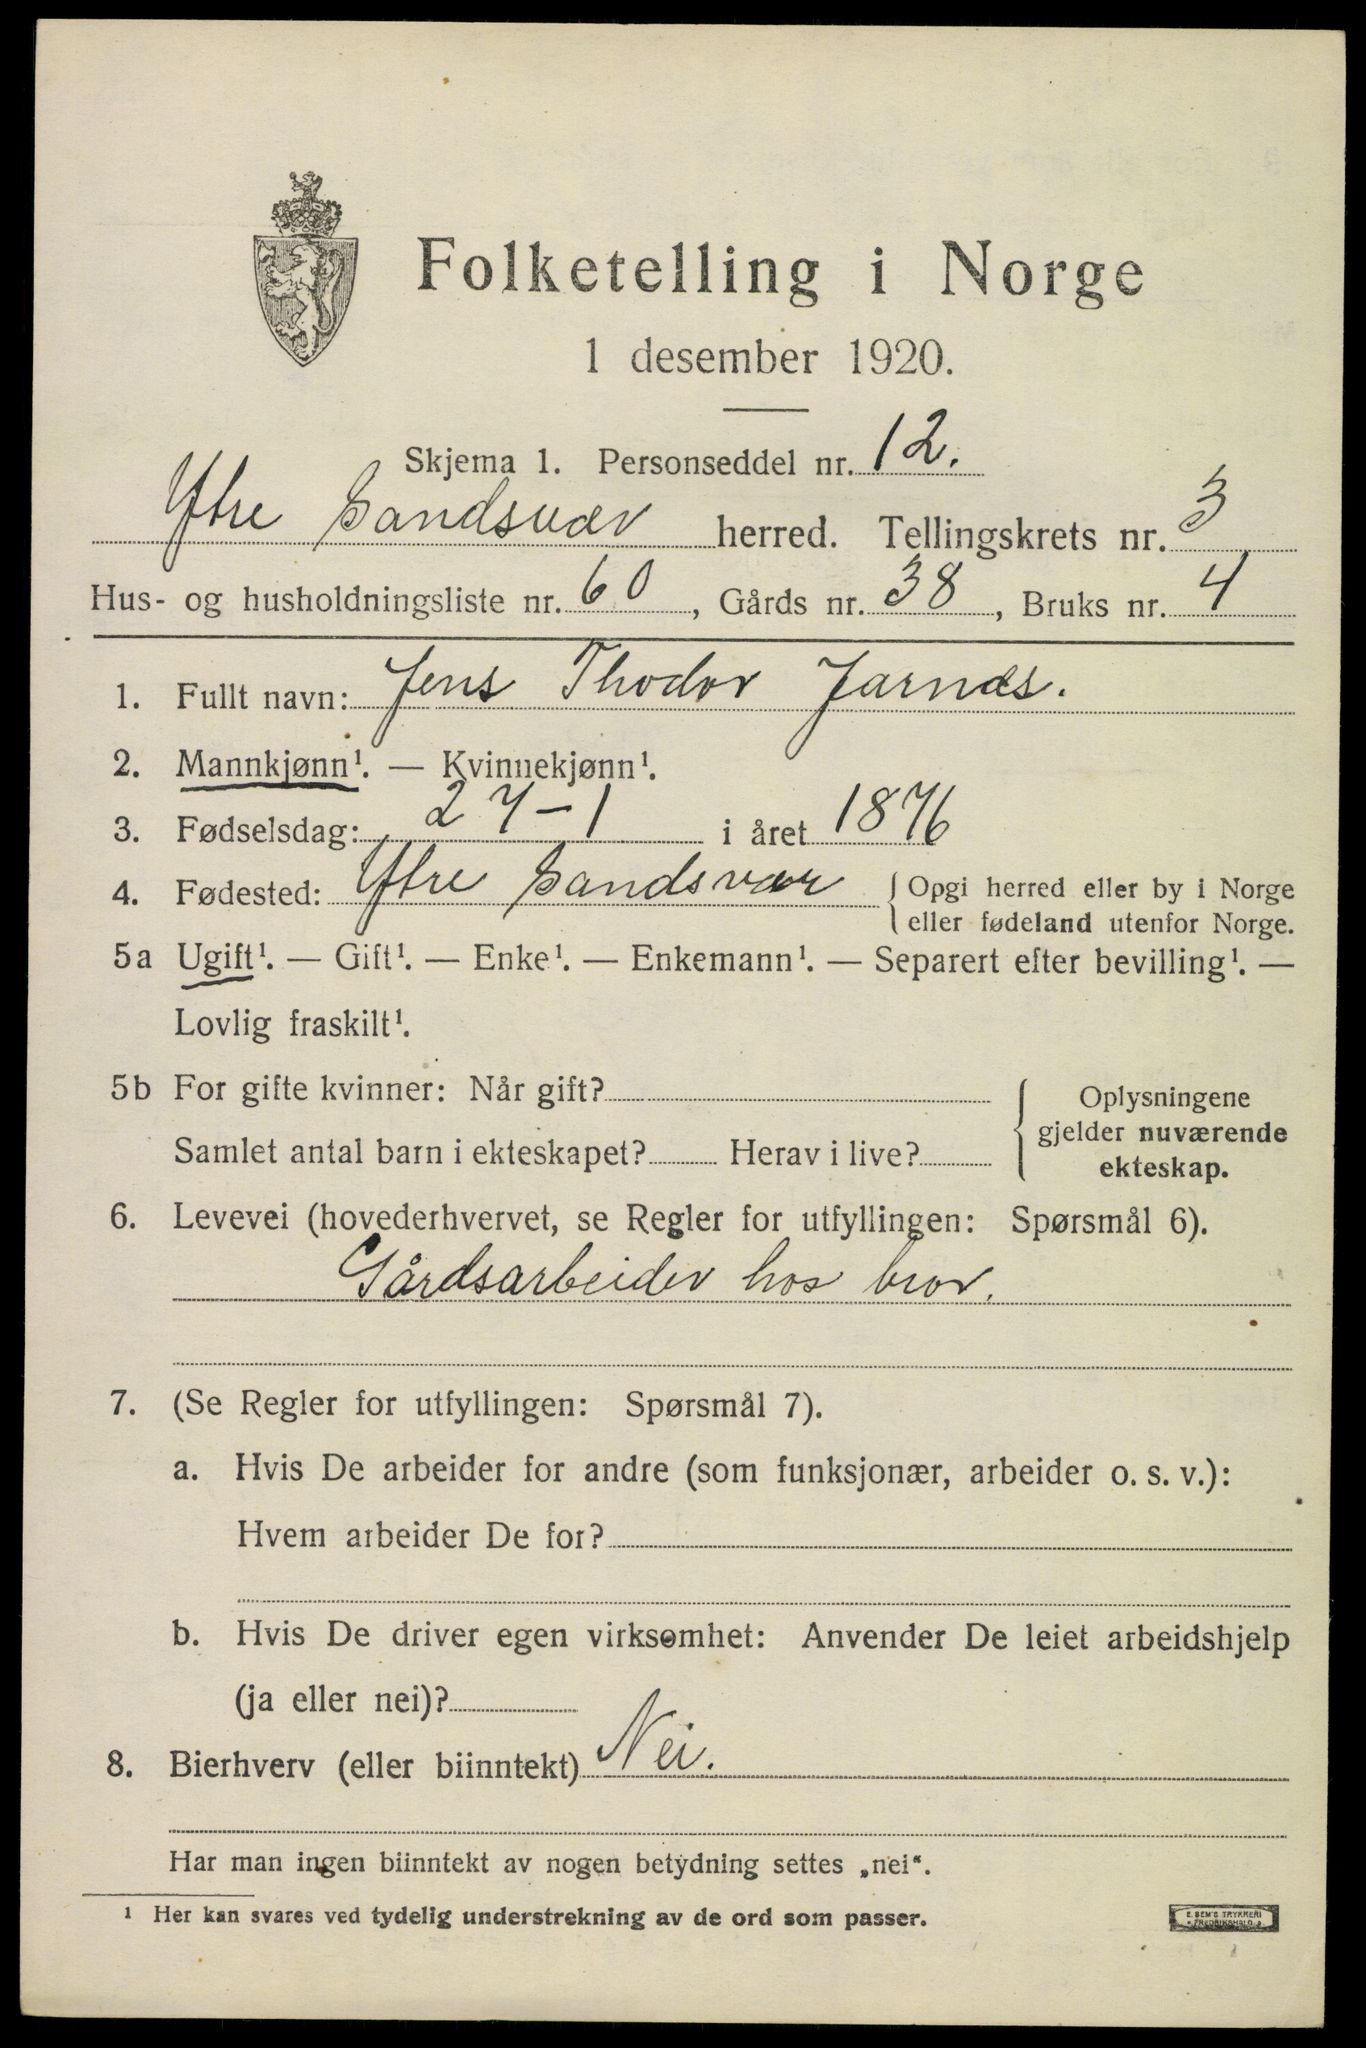 Folketelling i Norge
1 desember 1920.
Skjema 1. Personseddel nr. 12.
Ytre Sandsvær herred. Tellingskrets nr. 3
Hus- og husholdningsliste nr. 60, Gårds nr. 38, Bruks nr. 4
1. Fullt navn: Jens Thodor Jarnæs.
2. Mannkjønn¹. — Kvinnekjønn¹.
3. Fødselsdag: 27-1 i året 1876
4. Fødested: Ytre Sandsvær { Opgi herred eller by i Norge
eller fødeland utenfor Norge.
5a Ugift¹. — Gift¹. — Enke¹. — Enkemann¹. — Separert efter bevilling¹. —
Lovlig fraskilt¹.
5b For gifte kvinner: Når gift?
Samlet antal barn i ekteskapet? Herav i live?
{ Oplysningene
gjelder nuværende
ekteskap.
6. Levevei (hovederhvervet, se Regler for utfyllingen: Spørsmål 6).
Gårdsarbeider hos bror.
7. (Se Regler for utfyllingen: Spørsmål 7).
a. Hvis De arbeider for andre (som funksjonær, arbeider o. s. v.):
Hvem arbeider De for?
b. Hvis De driver egen virksomhet: Anvender De leiet arbeidshjelp
(ja eller nei)?
8. Bierhverv (eller biinntekt) Nei.
Har man ingen biinntekt av nogen betydning settes „nei“.
¹ Her kan svares ved tydelig understrekning av de ord som passer.
E. SEM'S TRYKKERI
FREDRIKSHALD